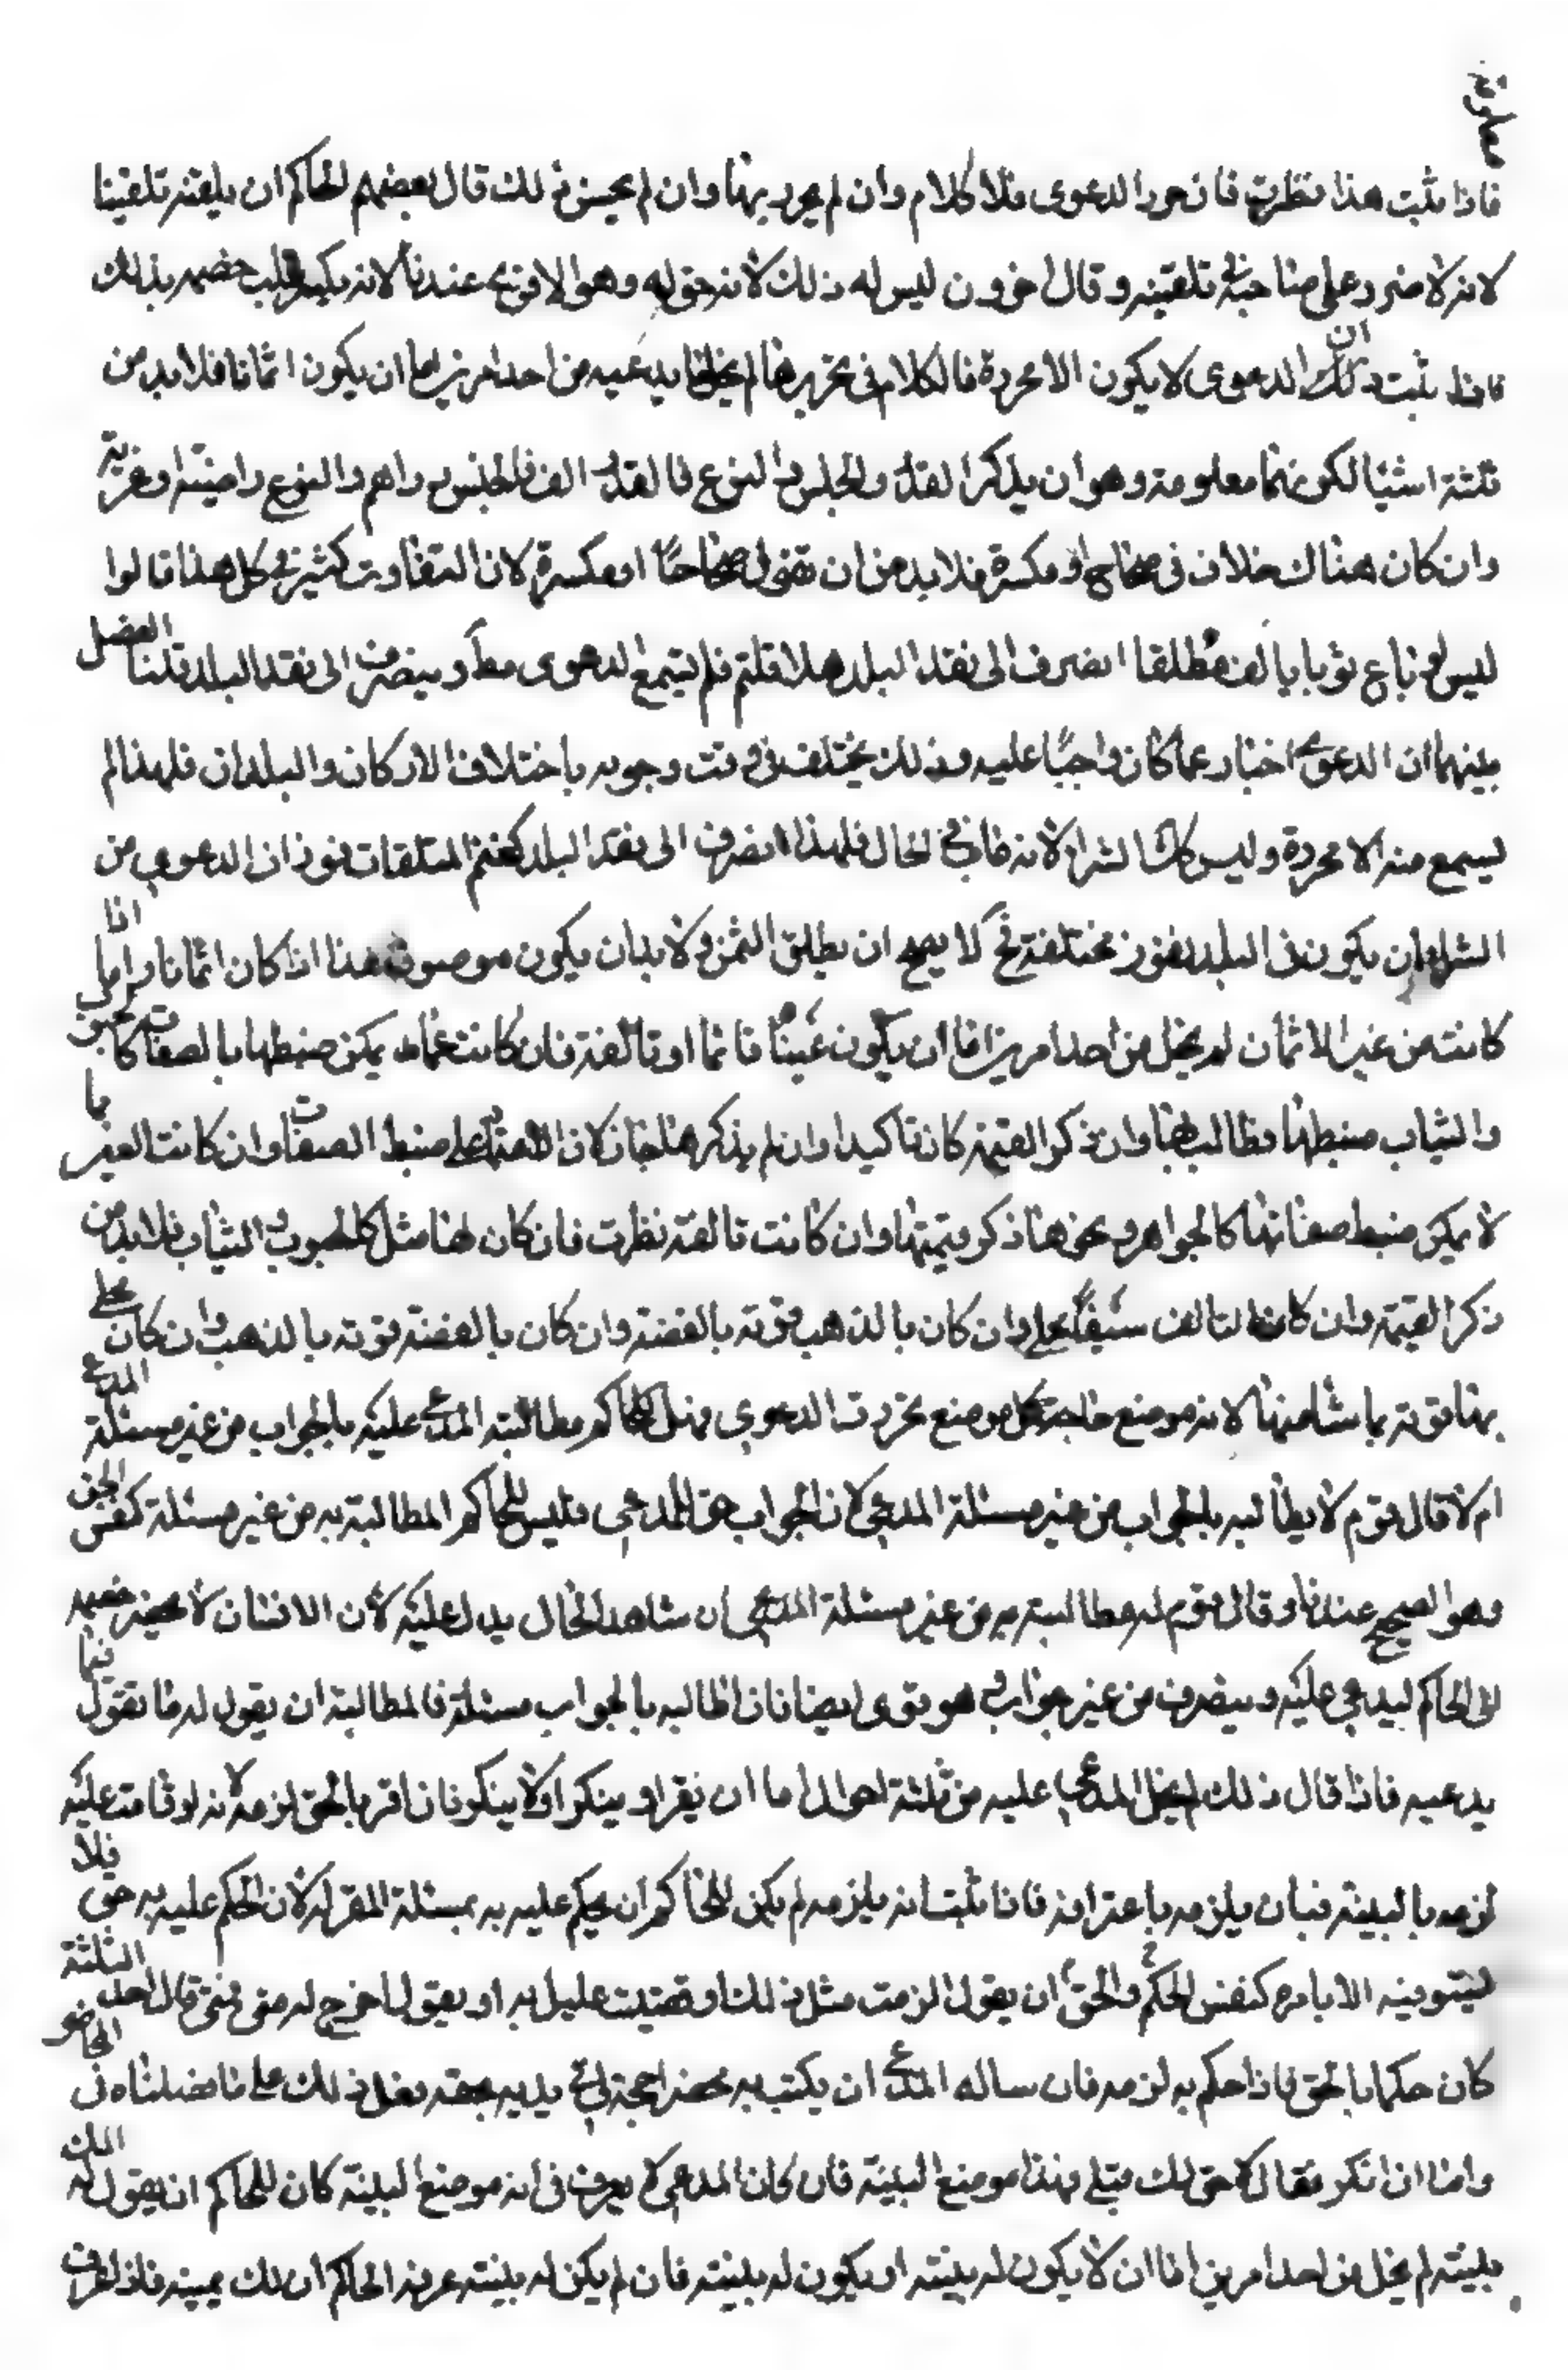 معلومة
فاذا ثبت هذا نظرت فان حرر الدعوى فلا كلام وان لم يحررها وان لم يحسن ذلك قال بعضهم للحاكم ان يلقنه تلقينا
لانه لا ضرر على صاحبه في تلقينه وقال اخرون ليس له ذلك لانه وهو الاقوى عندنا لانه يكسر قلب خصمه بذلك
فاذا ثبت ذلك ان الدعوى لا يكون الا محررة فالكلام في تحريرها لم يخل ما يدعيه من احد امرين اما ان يكون اثمانا فلا بد من
ثلثة اشيا لكونها معلومة وهو ان يذكر القدر والجنس والنوع فالقدر الف والجنس دراهم والنوع راضية او عزية
وان كان هناك خلاف في صحاح او مكسرة فلا بد من ان تقول صحاحًا او مكسرة لان التفاوت كثير في كل هذا قالوا
ليس لو باع ثوبا بالف مطلقا انصرف الى نقد البلد هلا قلتم فلم يسمع الدعوى مط وينصرف الى نقد البلد قلنا الفصل
بينهما ان الدعوى اخبار عما كان واجبًا عليه وذلك يختلف في وقت وجوبه باختلاف الازكان والبلدان فلهذا لم
يسمع منه الا محررة وليس كك الشرا لانه في الحال فلهذا انصرف الى نقد البلد كقيم المتلفات فوزان الدعوى من
الشرا ان يكون في البلد نقوز مختلفة فح لا يصح ان يطلق الثمن ولا بد ان يكون موصوفا هذا اذا كان اثمانا واما اذا
كانت من غير الاثمان لم يخل من احد امرين اما ان يكون عينًا قائما او تالفة فان كانت عما يمكن ضبطها بالصفات كالحبوب
والثياب ضبطها وطالب بها وان ذكر القيمة كان تاكيدا وان لم يذكرها جاز لان الاعتماد على ضبط الصفات وان كانت العين مما
لا يمكن ضبط صفاتها كالجواهر ونحوها ذكر قيمتها وان كانت تالفة نظرت فان كان لها مثل كالحبوب والثياب فلا بد من
ذكر القيمة وان كان التالف سيفًا محلى وان كان بالذهب قومه بالفضة وان كان بالفضة قومه بالذهب وان كان محلى
بهما قومه بما شا منهما لانه موضع حاجة كل موضع تحررت الدعوى فهل للحاكم مطالبة المدعى عليه بالجواب من غير مسئلة المدعى
ام لا قال قوم لا يطالبه بالجواب من غير مسئلة المدعى لان الجواب حق المدعى فليس للحاكم المطالبة به من غير مسئلة كنفس الحق
وهو الصحيح عندنا وقال قوم له مطالبته به من غير مسئلة المدعى لان شاهد الحال يدل عليه لان الانسان لا يحضر خصمه
الى الحاكم ليدعى عليه وينصرف من غير جواب وهو قوى ايضا فاذا طالبه بالجواب مسئلة فالمطالبة ان يقول له ما تقول فيما
يدعيه فاذا قال ذلك لم يخل المدعى عليه من ثلثة احوال اما ان يقر او ينكر او لا ينكر فان اقر بالحق لزمه لانه لو قامت عليه
لزمه بالبينة فبان يلزمه باعترافه فاذا ثبت انه يلزمه لم يكن للحاكم ان يحكم عليه به بمسئلة المقر له لان الحكم عليه به حق فلا
يستوفيه الا بامره كنفس الحق والحكم ان يقول الزمت مثل ذلك او قضيت عليك به او يقول اخرج له من حقه فمتى قال احد الثلثة
كان حكما بالحق فاذا حكم به لزمه فان ساله المدعى ان يكتب به محضرا حجة في يديه بحقه فعل ذلك على ما فصلناه في المحاضر
واما ان انكر فقال لا حق لك قبلى فهذا موضع البينة فان كان المدعى لا يعرف في انه موضع البينة كان للحاكم ان يقول له الك
بينة لم يخل من احد امرين اما ان لا يكون له بينة او يكون له بينة فان لم يكن له بينة عرفه الحاكم ان لك يمينه فاذا عرف